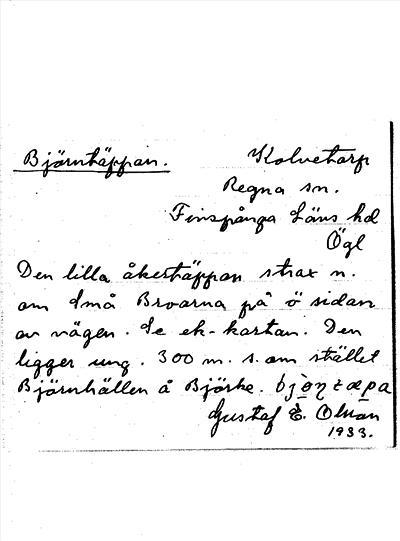 Björntäppan. Kolvetorp
Regna sn.
Finspånga Läns hd
Ögl
Den lilla åkertäppan strax n.
om Små Broarna på ö sidan
av vägen. Se ek-kartan. Den
ligger ung. 300 m. s. om stället
Björnhällen å Björke.
Gustaf E. Olsson
1933.